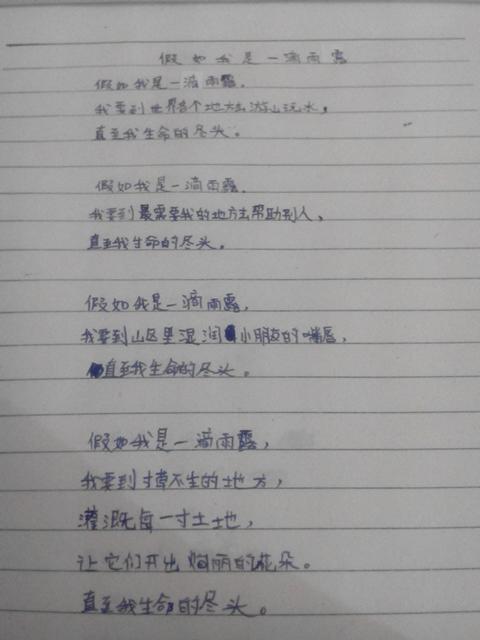 假如我是一滴雨露
假如我是一滴雨露，
我要到世界各个地方去游山玩水，
直至我生命的尽头。
假如我是一滴雨露，
我要到最需要我的地方去帮助别人，
直至我生命的尽头。
假如我是一滴雨露，
我要到山区里湿润小朋友的嘴唇，
直至我生命的尽头。
假如我是一滴雨露，
我要到寸草不生的地方，
灌溉每一寸土地，
让它们开出绚丽的花朵。
直至我生命的尽头。